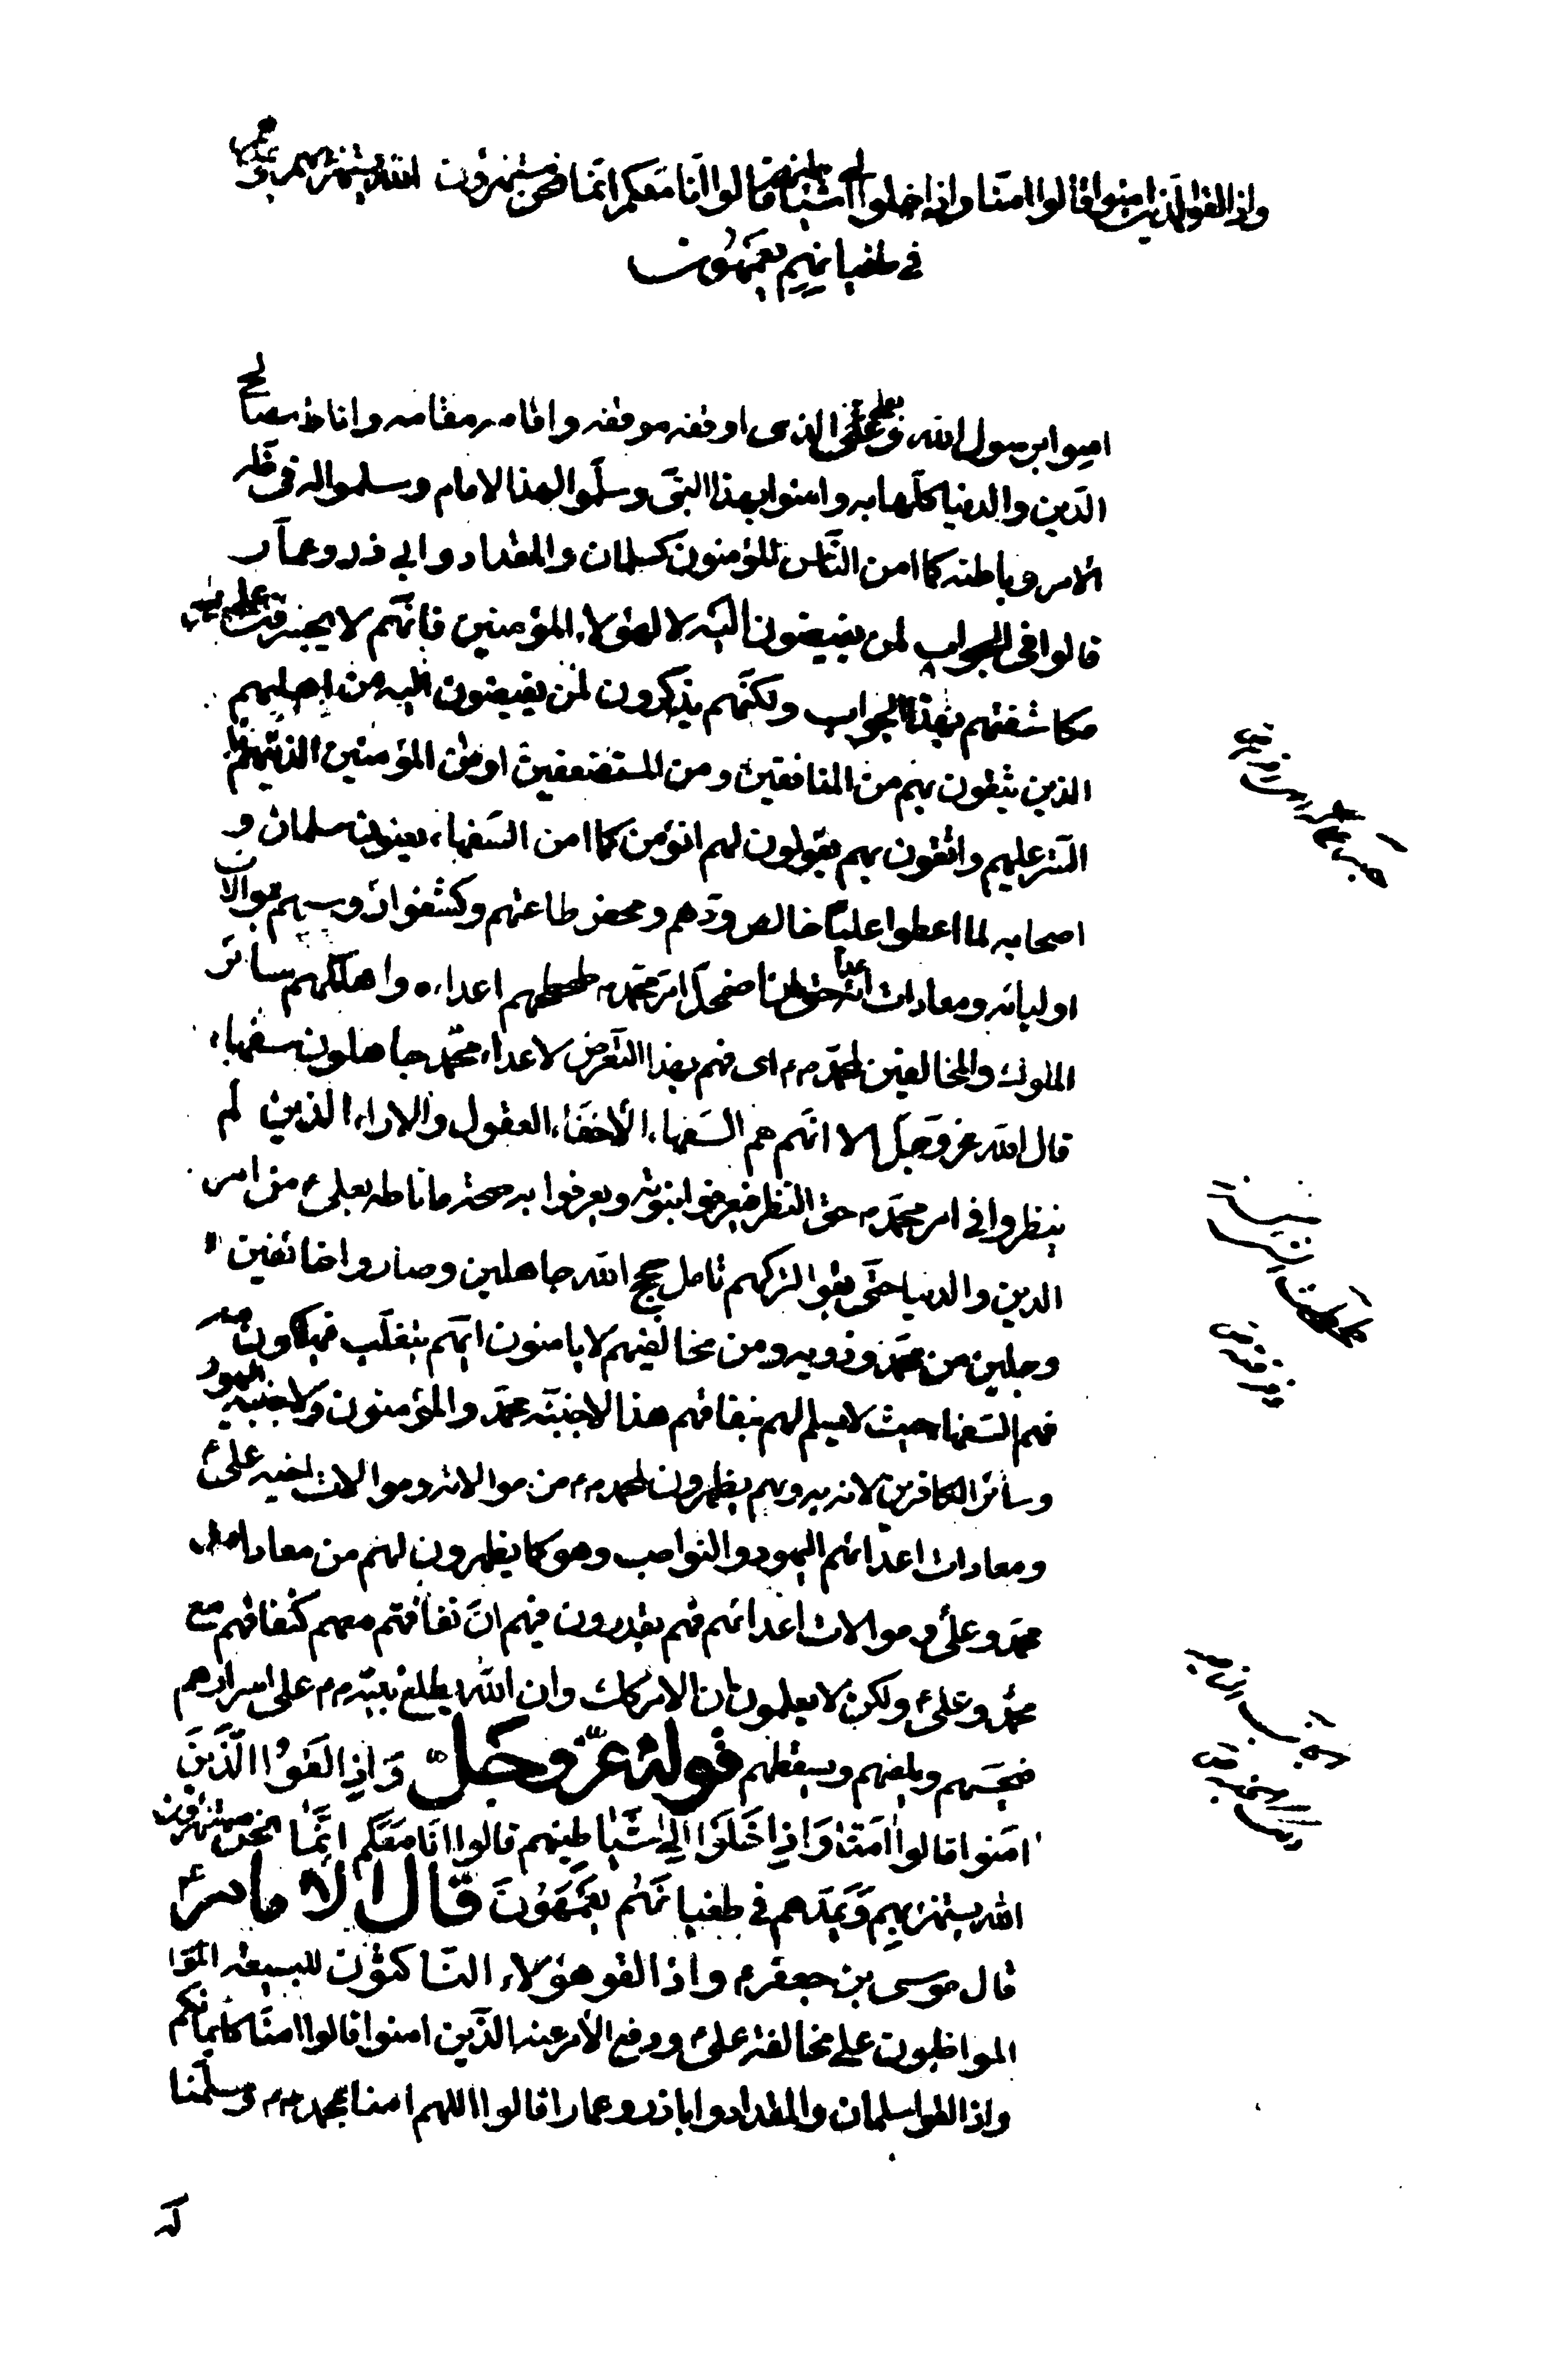 واذا لقوا الذين امنوا قالوا امنا واذا خلوا الى شياطينهم قالوا انا معكم انما نحن مستهزؤن الله يستهزئ بهم ويمدهم
في طغيانهم يعمهون
امنوا برسول الله وعلي الذى اوقفه موقفه واقامه مقامه واناط مصالح
الدين والدنيا كلها به وامنوا بهذا النبى وسلموا لهذا الامام وسلموا له فى ظاهر
الامر وباطنه كما امن الناس المؤمنون كسلمان والمقداد وابي ذر وعمار
قالوا فى الجواب لمن يفيضون اليه لا لهؤلاء المؤمنين فانهم لا يجسرون على
مكاشفتهم بهذا الجواب ولكنهم يذكرون لمن يفيضون اليه من اهليهم
الذين يثقون بهم من المنافقين ومن المستضعفين او من المؤمنين الذين هم
الستر عليهم واثقون بهم يقولون لهم انؤمن كما امن السفهاء يعنون سلمان و
اصحابه لما اعطوا عليا خالص ودهم ومحض طاعتهم وكشفوا رؤسهم بموالات
اوليائه ومعادات اعدائه حتى اذا اضمحل امر محمد طحطحهم اعداءه واهلكهم سائر
الملوك والمخالفين لمحمد اى فهم بهذا التعرض لاعداء محمد جاهلون سفهاء
قال الله عز وجل الا انهم هم السفهاء الأخفاء العقول والاراء الذين لم
ينظروا في امر محمد حق النظر فيعرفوا نبوته ويعرفوا به صحة ما ناطه بعلي من امر
الدين والدنيا حتى بقوا لتركهم تامل حجج الله جاهلين وصاروا خائفين
وجلين من محمد وذويه ومن مخالفيهم لا يامنون ايهم يغلب فيهلكون معه
فهم السفهاء حيث لا يسلم لهم بنفاقهم هذا لا محبة محمد والمؤمنون ولا محبة اليهود
وسائر الكافرين لانه به وبهم يظهرون لمحمد من موالاته وموالات اخيه علي
ومعادات اعدائهم اليهود والنواصب وهو كما يظهرون لهم من معادات
محمد وعلي وموالات اعدائهم فهم يقدرون فيهم ان نفاقهم معهم كنفاقهم مع
محمد وعلي ولكن لا يعلمون ان الامر كك وان الله يطلع نبيه على اسرارهم
فيخسهم ويلعنهم ويسقطهم قوله عز وجل وَاذا لقوا الَّذين
امنوا قالوا امنا وَاذا خلوا الى شياطينهم قالوا انا معكم انما نحن مستهزؤن
الله يستهزئ بهم ويمدهم في طغيانهم يعمهون قال الامام
قال موسى بن جعفر واذا لقو هؤلاء الناكثون للبيعة
المواظبون على مخالفة علي ودفع الأمر عنه الذين امنوا قالوا امنا كايمانكم
واذا لقوا سلمان والمقداد واباذر وعمارا قالوا اللهم امنا بمحمد وسلمنا
له